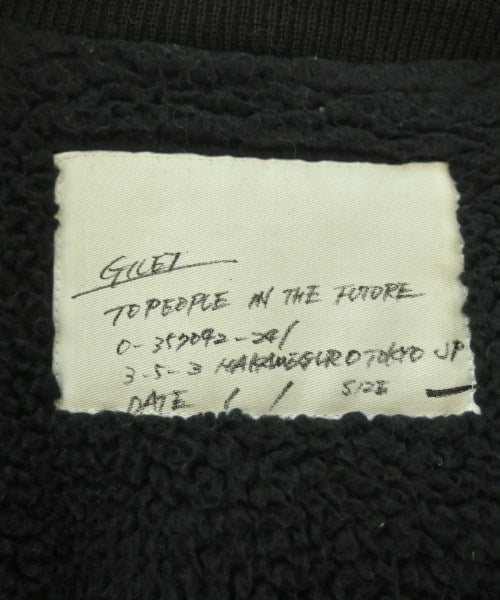 GILET
TO PEOPLE IN THE FUTURE
3-5-3 NAKAMEGURO TOKYO JP
DATE / / SIZE